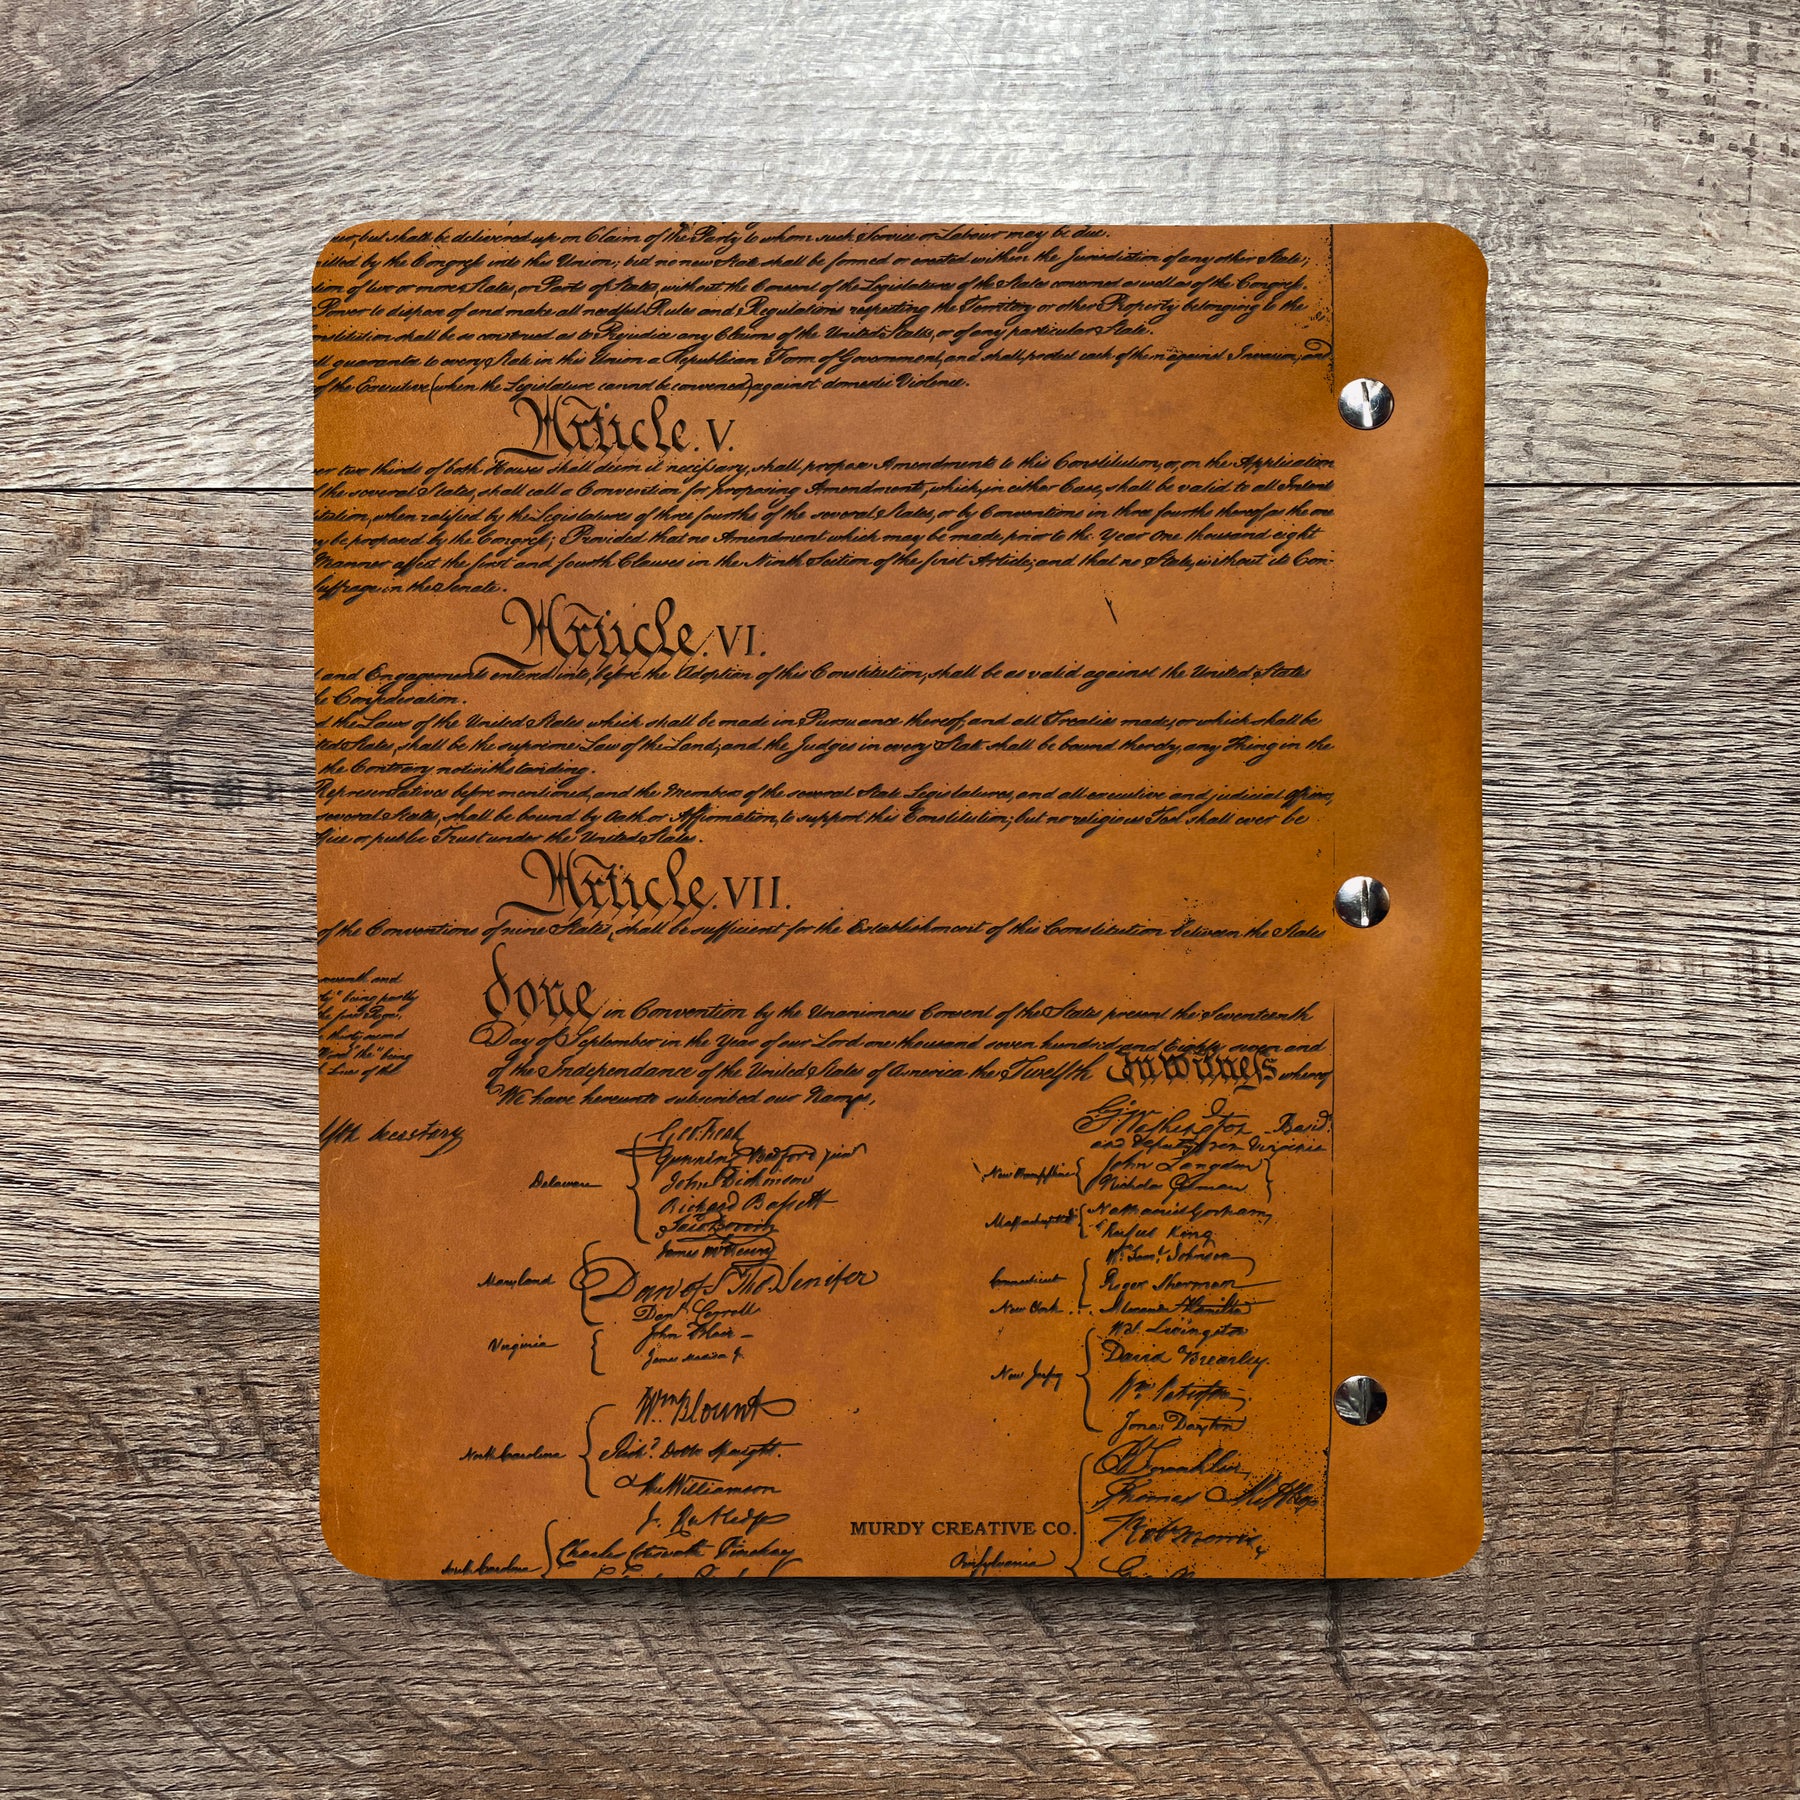 but shall be delivered up on Claim of the Party to whom such Service or Labour may be due.
by the Congress into this Union; but no new State shall be formed or erected within the Jurisdiction of any other State;
of two or more States, or Parts of States, without the Consent of the Legislatures of the States concerned as well as of the Congress.
Power to dispose of and make all needful Rules and Regulations respecting the Territory or other Property belonging to the
shall be so construed as to Prejudice any Claims of the United States, or of any particular State.
guarantee to every State in this Union a Republican Form of Government, and shall protect each of them against Invasion; and
of the Executive (when the Legislature cannot be convened) against domestic Violence.
Article. V.
two thirds of both Houses shall deem it necessary, shall propose Amendments to this Constitution, or, on the Application
the several States, shall call a Convention for proposing Amendments, which, in either Case, shall be valid to all Intents
when ratified by the Legislatures of three fourths of the several States, or by Conventions in three fourths thereof, as the one
be proposed by the Congress; Provided that no Amendment which may be made prior to the Year One thousand eight
Manner affect the first and fourth Clauses in the Ninth Section of the first Article; and that no State, without its Con-
Suffrage in the Senate.
Article. VI.
and Engagements entered into, before the Adoption of this Constitution, shall be as valid against the United States
Confederation.
the Laws of the United States which shall be made in Pursuance thereof; and all Treaties made, or which shall be
States, shall be the supreme Law of the Land; and the Judges in every State shall be bound thereby, any Thing in the
the Contrary notwithstanding.
Representatives before mentioned, and the Members of the several State Legislatures, and all executive and judicial Officers,
several States, shall be bound by Oath or Affirmation, to support this Constitution; but no religious Test shall ever be
or public Trust under the United States.
Article. VII.
of the Conventions of nine States, shall be sufficient for the Establishment of this Constitution between the States
done in Convention by the Unanimous Consent of the States present the Seventeenth
Day of September in the Year of our Lord one thousand seven hundred and Eighty seven and
of the Independance of the United States of America the Twelfth In Witness whereof
We have hereunto subscribed our Names,
and
being partly
the
thirty second
"the" being
Lines of the
Secretary
Geo: Read
Gunning Bedford jun
Delaware John Dickinson
Richard Bassett
Jaco: Broom
James McHenry
Maryland Dan of St Thos Jenifer
Danl Carroll
Virginia John Blair –
James Madison Jr.
Wm Blount
North Carolina Richd Dobbs Spaight.
Hu Williamson
J. Rutledge
South Carolina Charles Cotesworth Pinckney
Go Washington Presidt
and deputy from Virginia
New Hampshire John Langdon
Nicholas Gilman
Massachusetts Nathaniel Gorham
Rufus King
Wm Saml Johnson
Connecticut Roger Sherman
New York Alexander Hamilton
Wil: Livingston
New Jersey David Brearley.
Wm Paterson.
Jona: Dayton
B Franklin
Thomas Mifflin
Robt Morris
Pensylvania
MURDY CREATIVE CO.